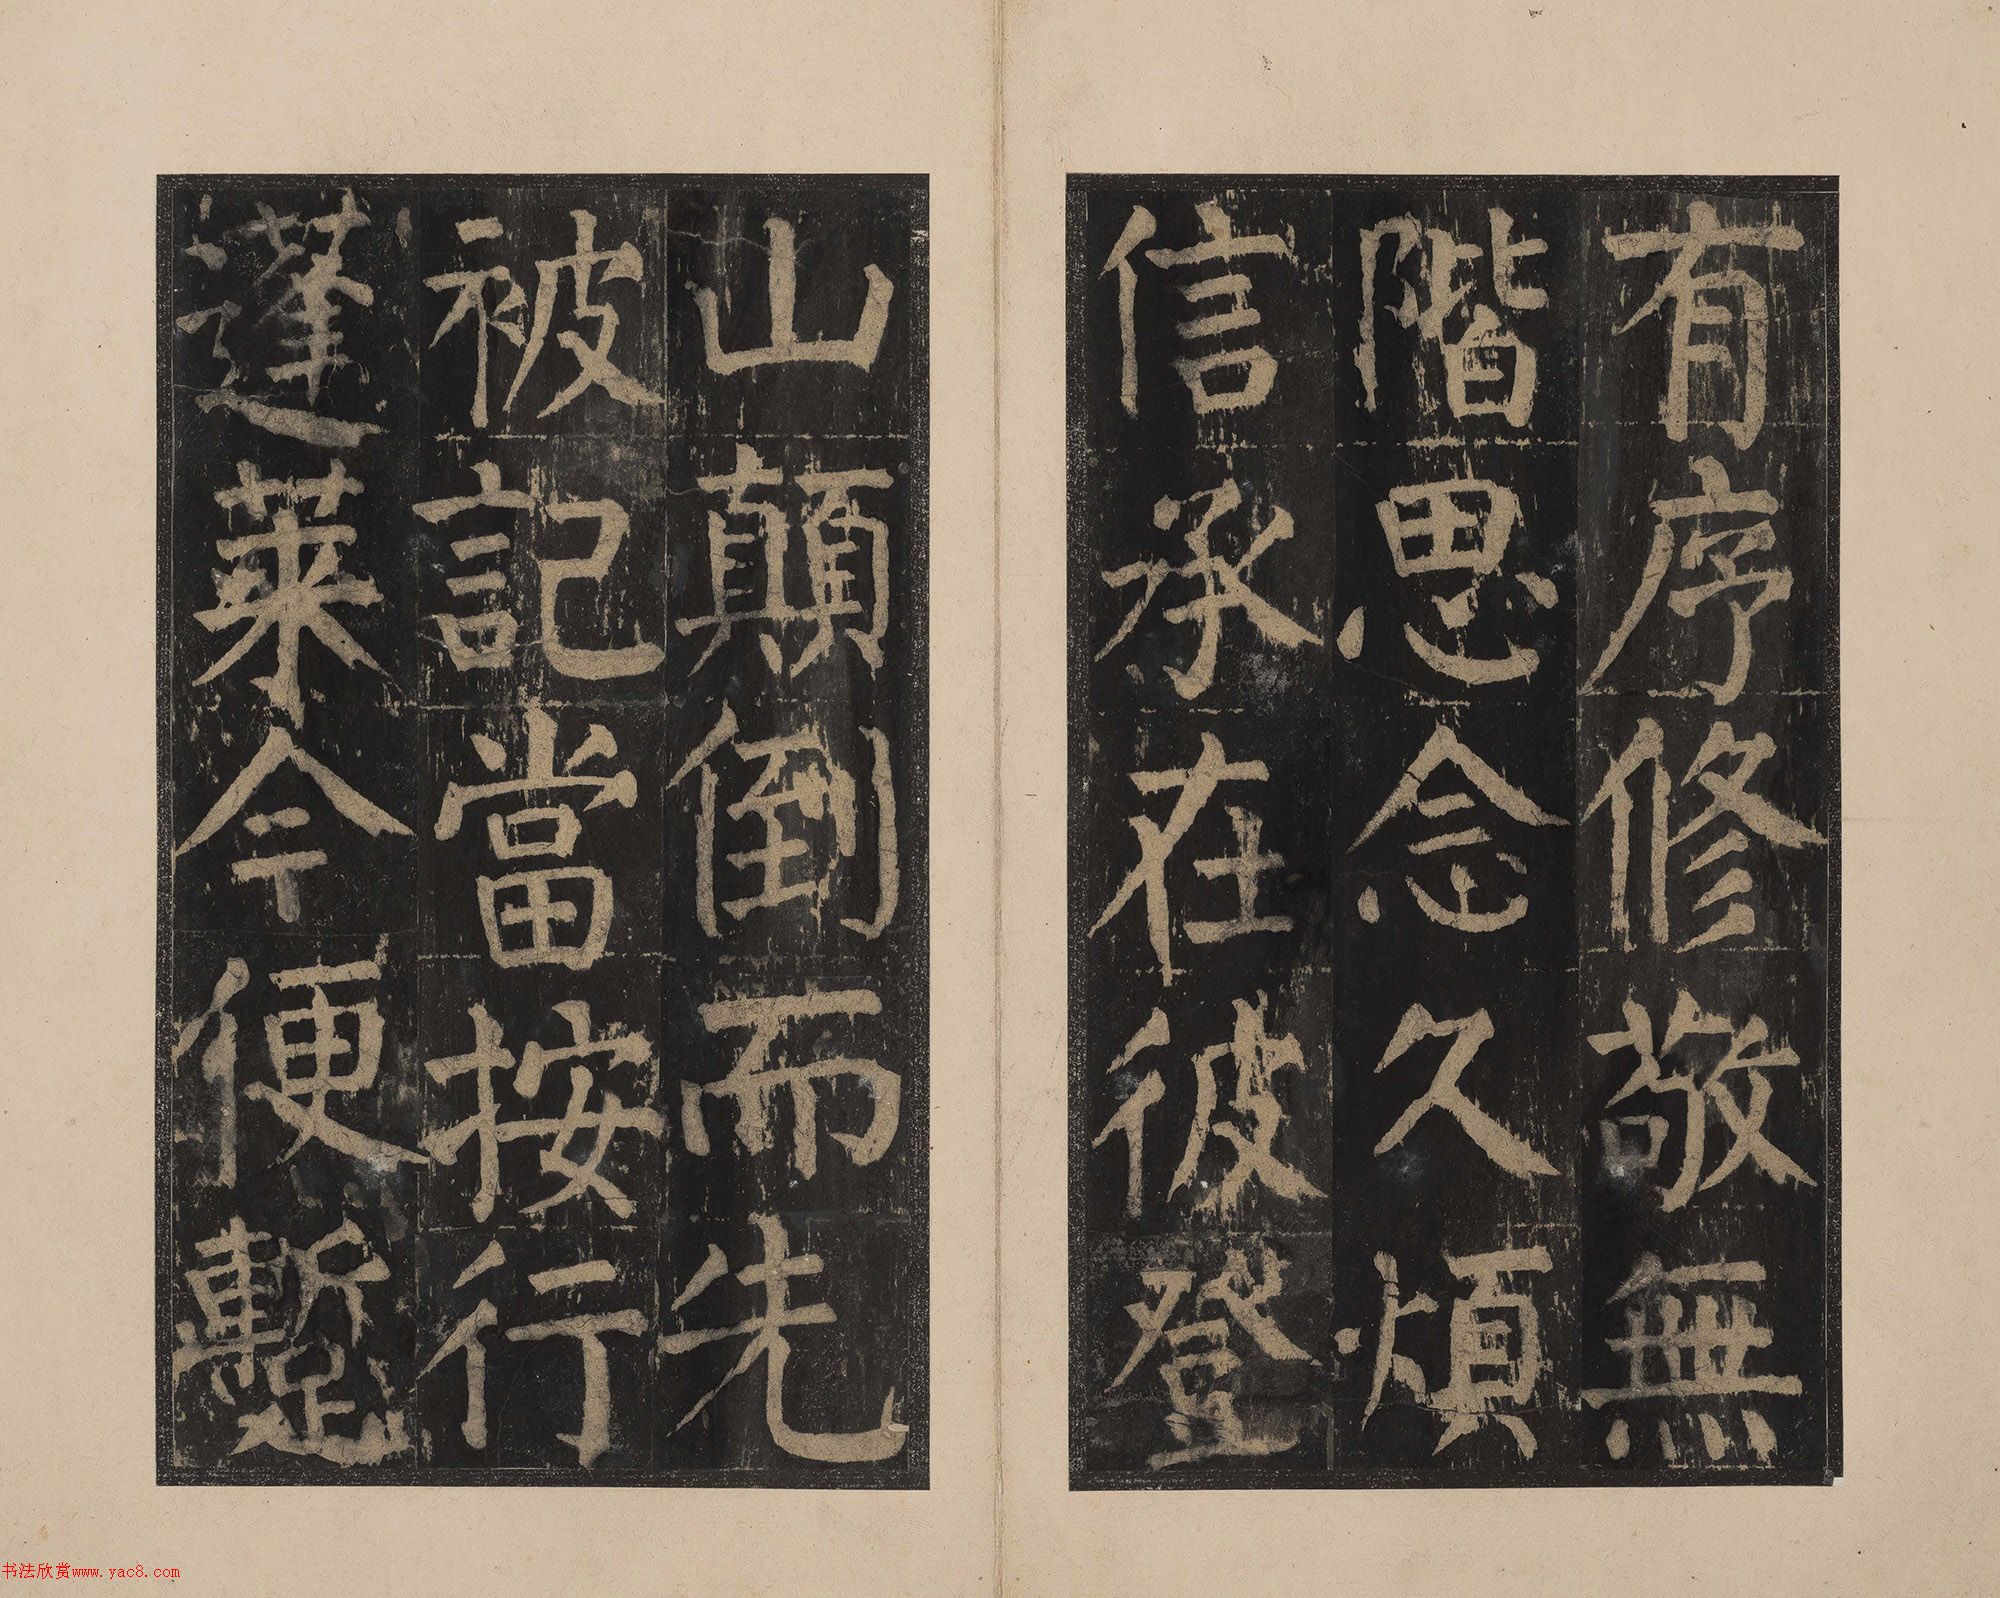 有序修敬無
階思念久煩
信承在彼登
山顛倒而先
被記當按行
蓬萊今便蹔
书法欣赏www.yac8.com